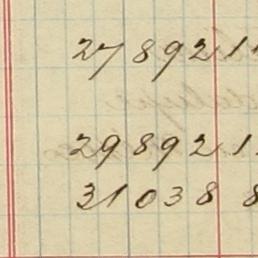 27 892 1
29 892 1
31 038 8